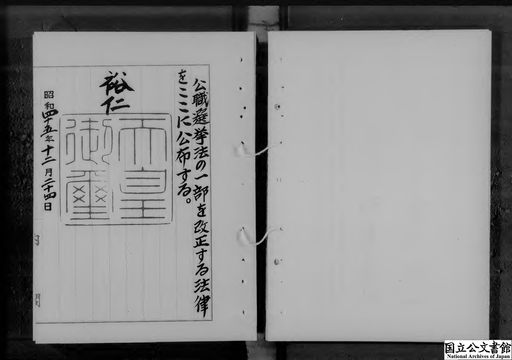 公職選挙法の一部を改正する法律
をここに公布する。
裕仁
天皇
御璽
昭和四十五年十二月二十四日
国立公文書館
National Archives of Japan